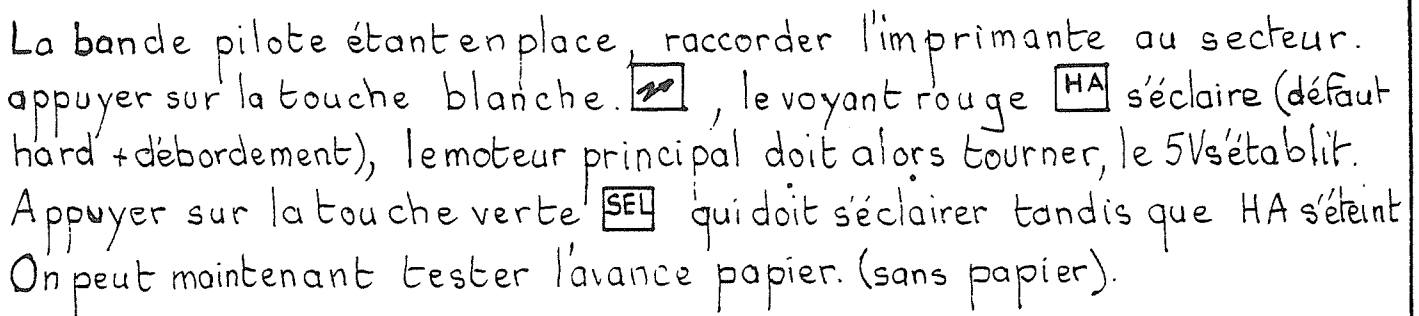 La bande pilote étant en place, raccorder l'imprimante au secteur.
appuyer sur la touche blanche. , le voyant rouge HA s'éclaire (défaut
hard + débordement), le moteur principal doit alors tourner, le 5V s'établit.
Appuyer sur la touche verte SEL qui doit s'éclairer tandis que HA s'éteint
On peut maintenant tester l'avance papier. (sans papier).